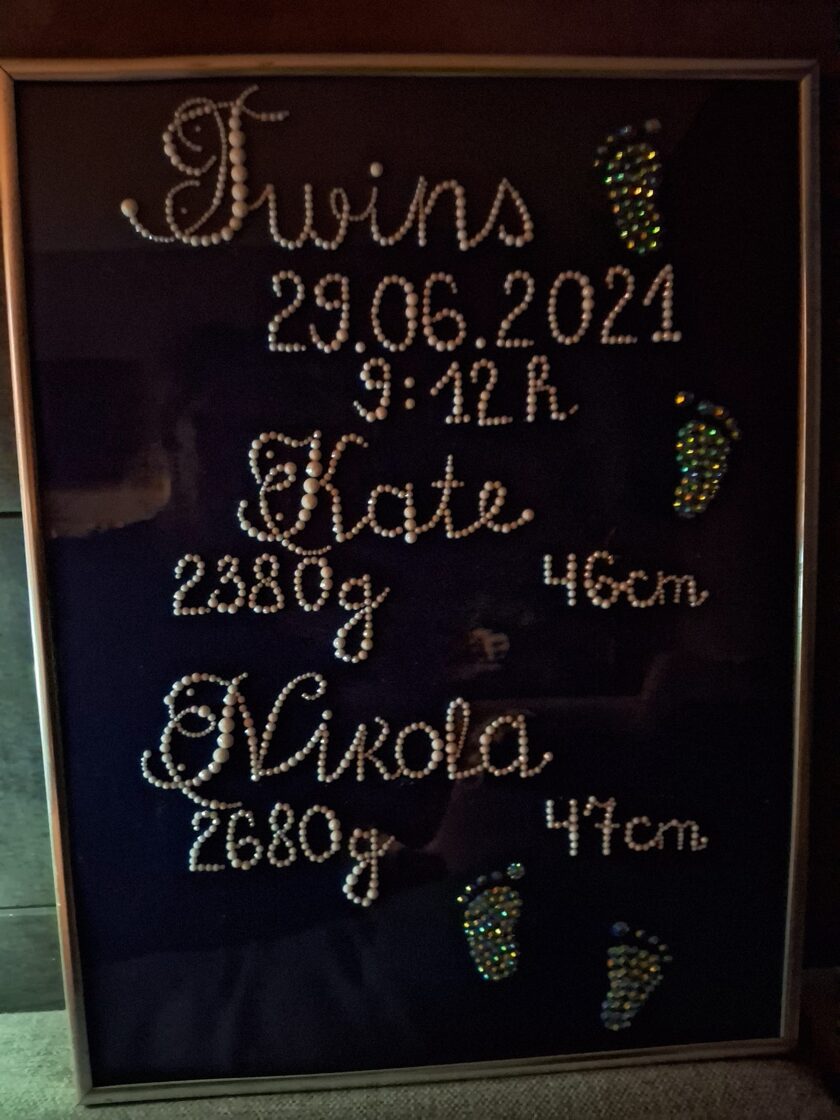 Twins
29.06.2021
9:12h
Kate
2380g 46cm
Nikola
2680g 47cm